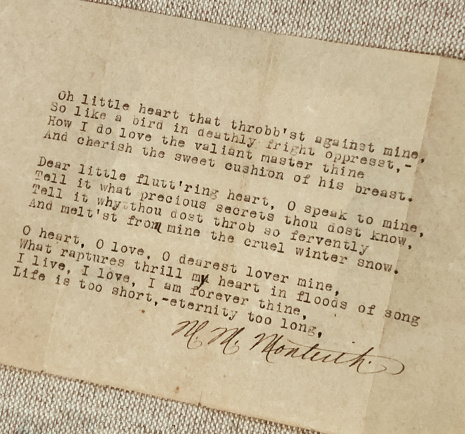 Oh little heart that throbb'st against mine,
So like a bird in deathly fright oppresst,-
How I do love the valiant master thine
And cherish the sweet cushion of his breast.
Dear little flutt'ring heart, O speak to mine,
Tell it what precious secrets thou dost know,
Tell it why thou dost throb so fervently
And melt'st from mine the cruel winter snow.
O heart, O love, O dearest lover mine,
What raptures thrill my heart in floods of song
I live, I love, I am forever thine,
Life is too short,-eternity too long,
M. M. Monteith.